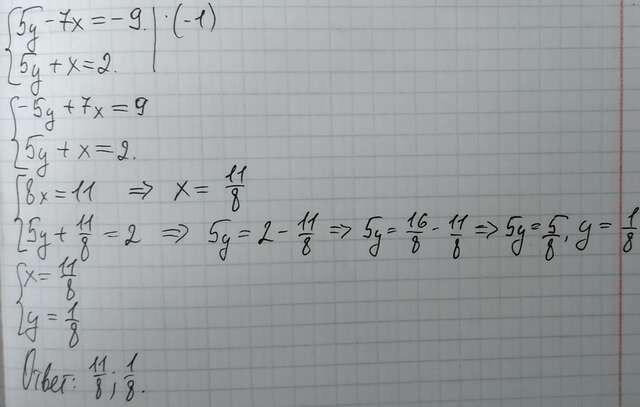 5y - 7x = -9. | · (-1)
5y + x = 2.
-5y + 7x = 9
5y + x = 2.
8x = 11 => x = 11/8
5y + 11/8 = 2 => 5y = 2 - 11/8 => 5y = 16/8 - 11/8 => 5y = 5/8, y = 1/8
x = 11/8
y = 1/8
Ответ: 11/8; 1/8.